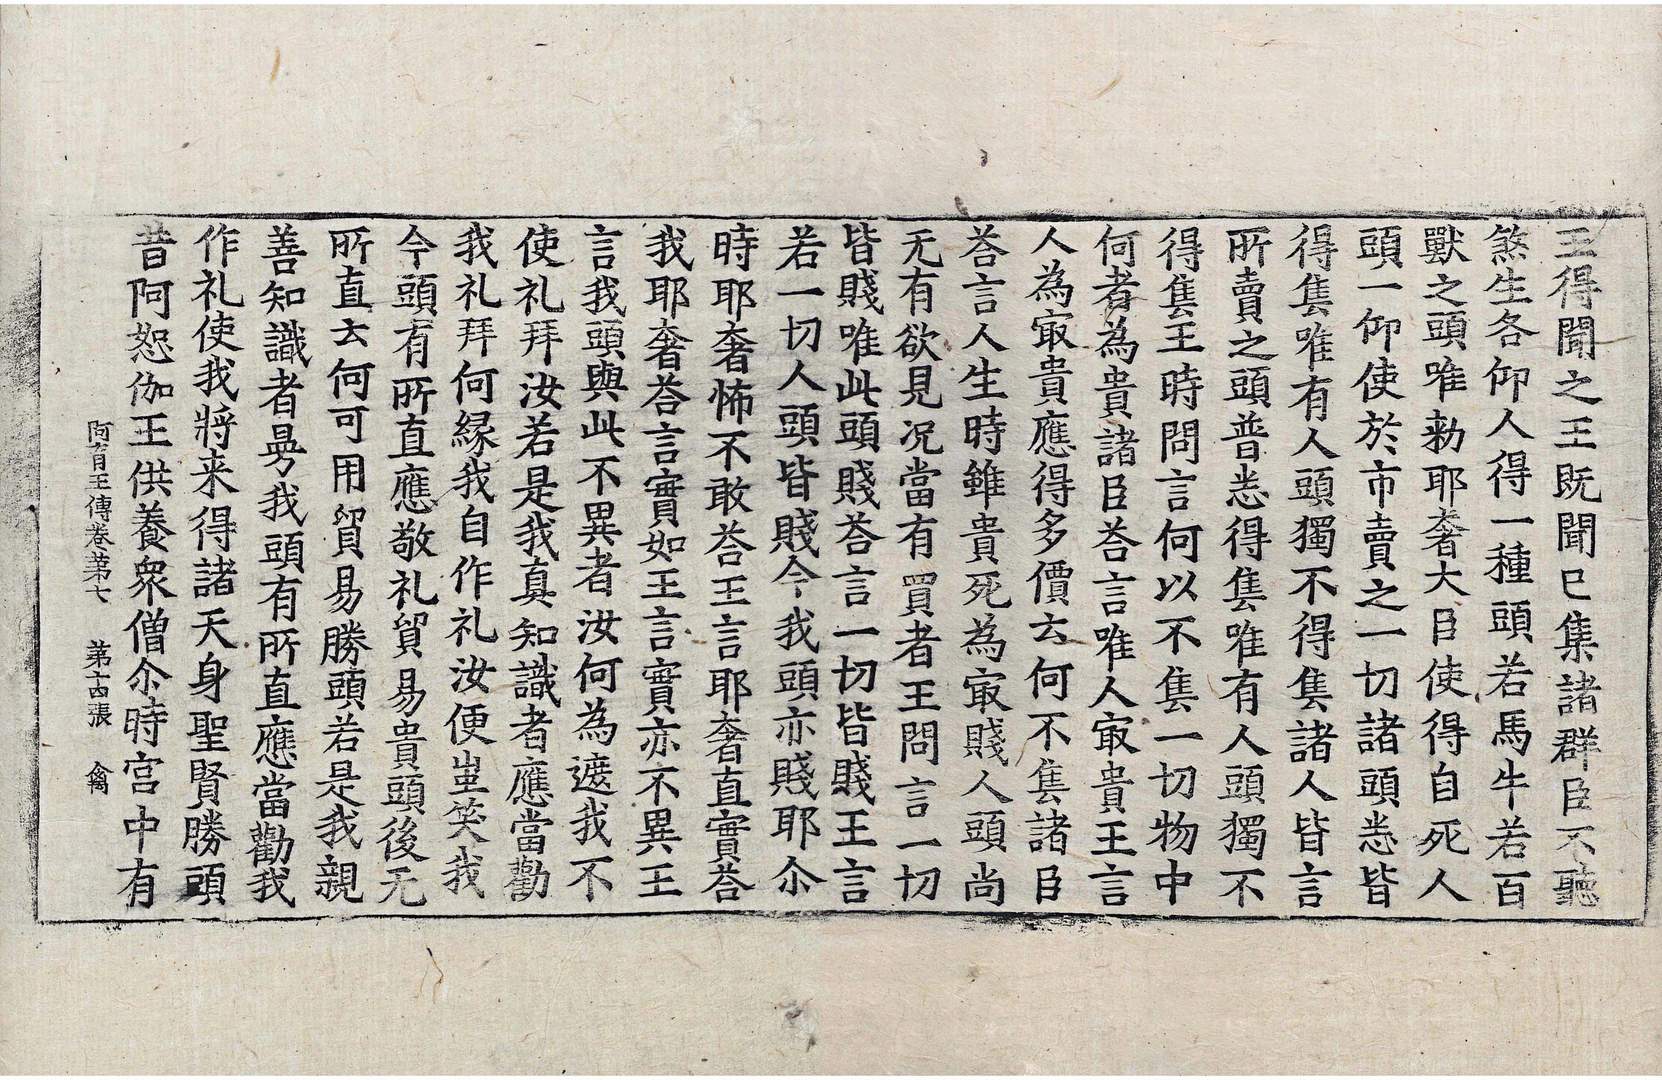 王得聞之王旣聞已集諸群臣不聽
煞生各仰人得一種頭若馬牛若百
獸之頭唯勑耶奢大臣使得自死人
頭一仰使於市賣之一切諸頭悉皆
得售唯有人頭獨不得售諸人皆言
所賣之頭普悉得售唯有人頭獨不
得售王時問言何以不售一切物中
何者為貴諸臣荅言唯人㝡貴王言
人為㝡貴應得多價云何不售諸臣
荅言人生時雖貴死為㝡賤人頭尚
无有欲見况當有買者王問言一切
皆賤唯此頭賤荅言一切皆賤王言
若一切人頭皆賤今我頭亦賤耶尒
時耶奢怖不敢荅王言耶奢直實荅
我耶奢荅言實如王言實亦不異王
言我頭與此不異者汝何為遮我不
使礼拜汝若是我真知識者應當勸
我礼拜何緣我自作礼汝便蚩笑我
今頭有所直應敬礼貿易貴頭後无
所直云何可用貿易勝頭若是我親
善知識者曼我頭有所直應當勸我
作礼使我將来得諸天身聖賢勝頭
昔阿恕伽王供養衆僧尒時宫中有
阿育王傳卷第七 第十四張 禽